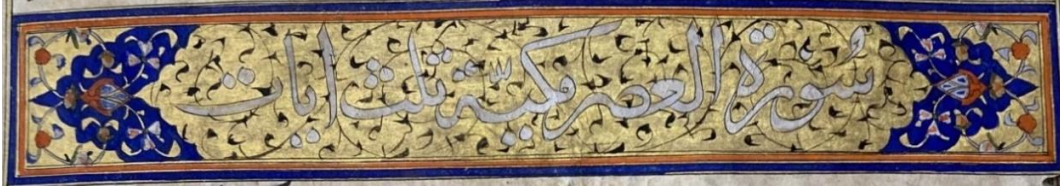 سورة العصر مكية ثلث ايات